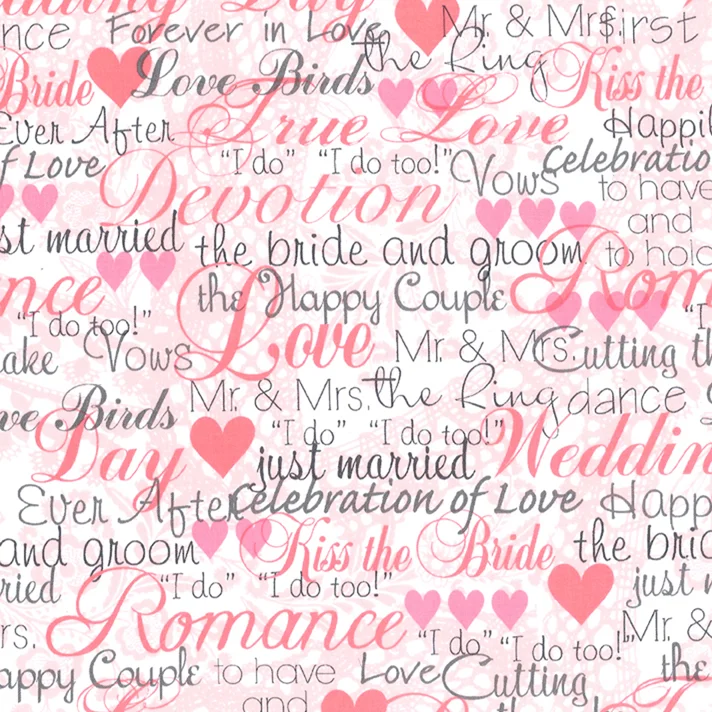 Wedding Day
nce Forever in Love Mr. & Mrs. first
the Ring
Bride Love Birds Kiss the
True Love
Ever After Happil
f Love "I do" "I do too!" Vows Celebratio
Devotion to have
and
st married the bride and groom to hold
nce the Happy Couple Rom
"I do too!" "I
Love Mr. & Mrs. Cutting th
ake Vows
Mr. & Mrs. the Ring dance
ve Birds "I do" "I do too!" Weddin
Day just married
Ever After Celebration of Love Happ
and groom Kiss the Bride the brid
ried "I do" "I do too!" just m
Romance
rs. "I do" "I do too!" Mr. &
appy Couple to have Love Cutting the
and the